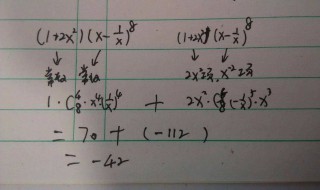 (1+2x²)(x-1/x)⁸ (1+2x²)(x-1/x)⁸
↓ ↓ ↓ ↓
常 常 2x²写, x⁻²写
1·C⁴₈·x⁴(1/x)⁴ + 2x²·C⁵₈(-1/x)⁵·x³
= 70 + (-112)
= -42